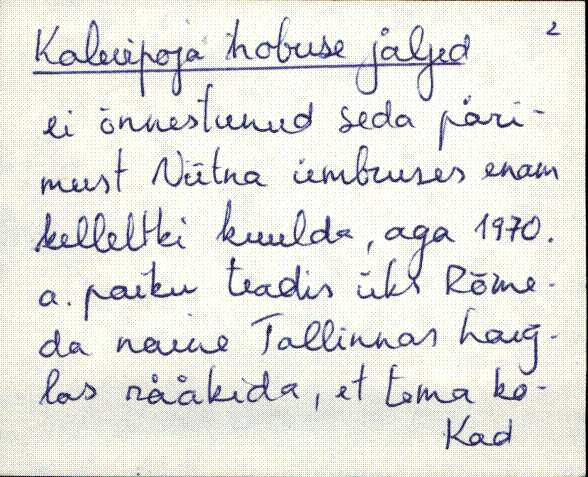 2
Kalevipoja hobuse jäljed
ei õnnestunud seda päri-
must Viitna ümbruses enam
kelleltki kuulda, aga 1970.
a. paiku teadis üks Rõme-
da naine Tallinnas haig-
las rääkida, et tema ko-
Kad